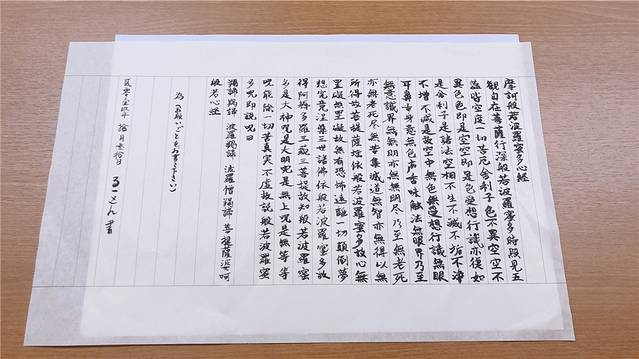 摩訶般若波羅蜜多心経
観自在菩薩行深般若波羅蜜多時照見五
蘊皆空度一切苦厄舎利子色不異空空不
異色色即是空空即是色受想行識亦復如
是舎利子是諸法空相不生不滅不垢不浄
不増不減是故空中無色無受想行識無眼
耳鼻舌身意無色声香味触法無眼界乃至
無意識界無無明亦無無明尽乃至無老死
亦無老死尽無苦集滅道無智亦無得以無
所得故菩提薩埵依般若波羅蜜多故心無
罣礙無罣礙故無有恐怖遠離一切顛倒夢
想究竟涅槃三世諸佛依般若波羅蜜多故
得阿耨多羅三藐三菩提故知般若波羅蜜
多是大神呪是大明呪是無上呪是無等等
呪能除一切苦真実不虚故説般若波羅蜜
多呪即説呪曰
羯諦羯諦 波羅羯諦 波羅僧羯諦 菩提薩婆呵
般若心経
為（お願いごとをお書き下さい）
年 拾月 拾日 るーさん書